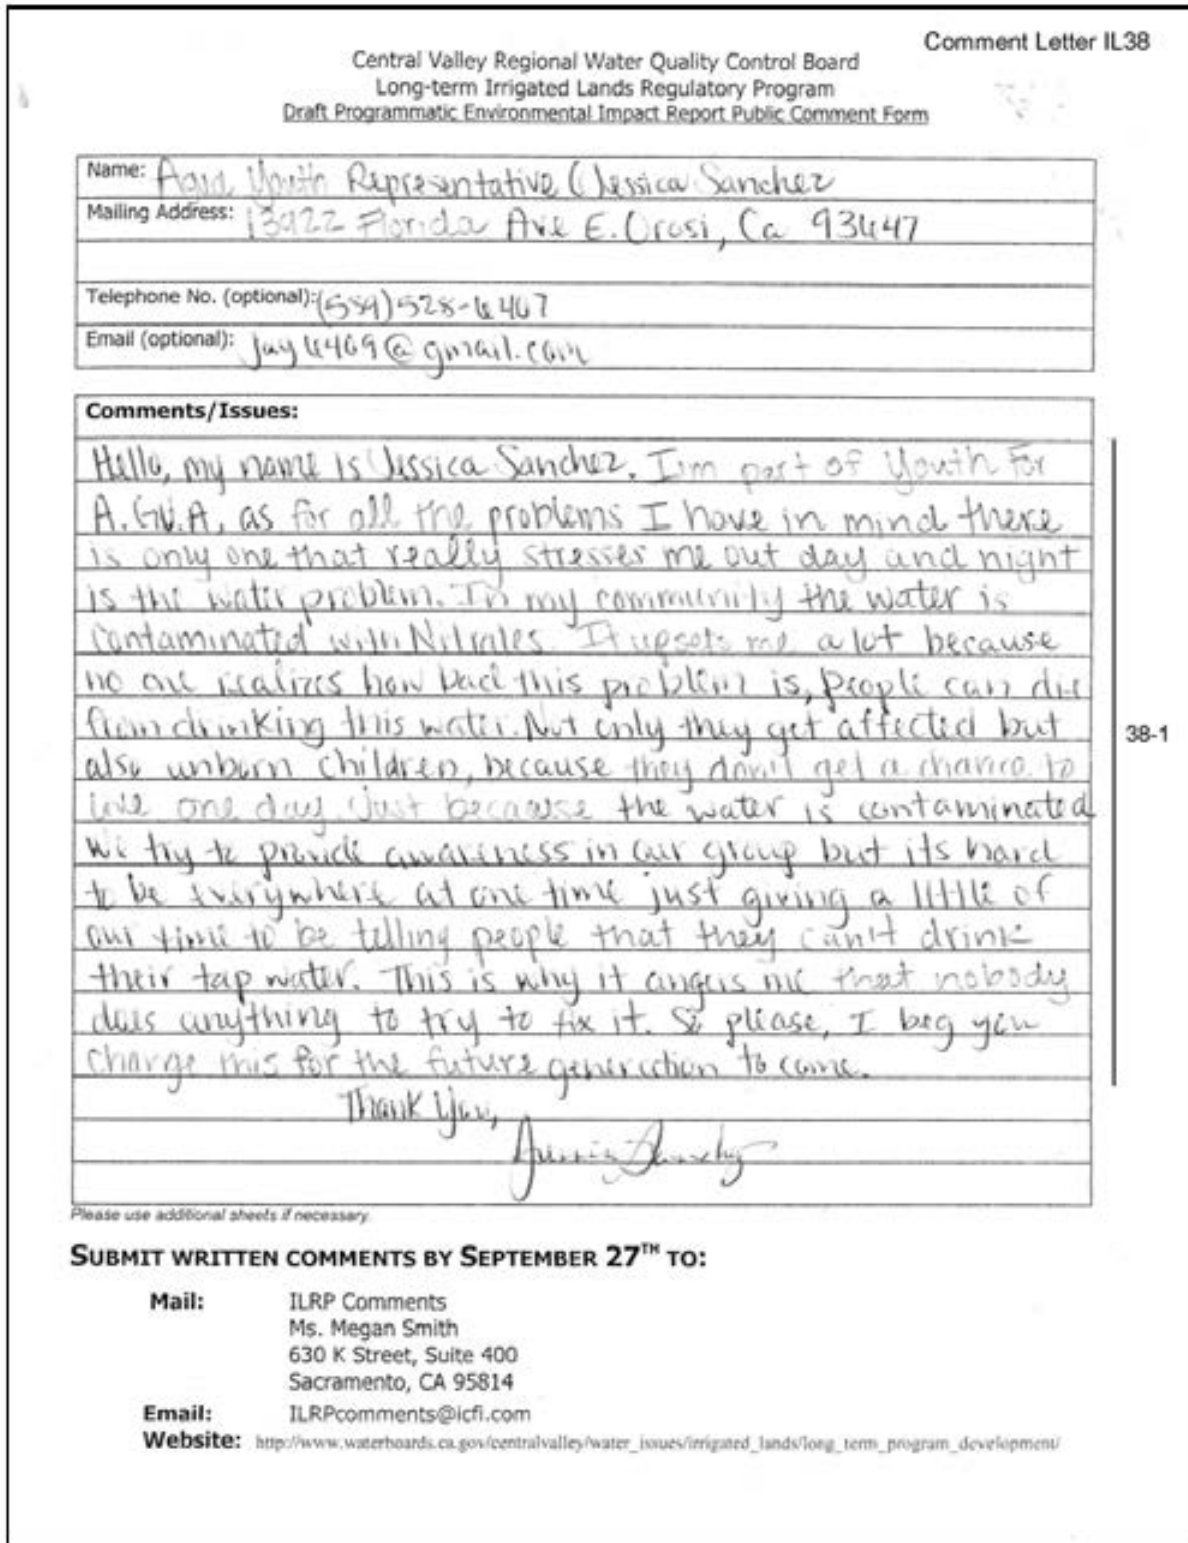 Comment Letter IL38
Central Valley Regional Water Quality Control Board
Long-term Irrigated Lands Regulatory Program
Draft Programmatic Environmental Impact Report Public Comment Form
Name: Agua Youth Representative (Jessica Sanchez
Mailing Address: 13922 Florida Ave E. Orosi, Ca 93647
Telephone No. (optional): (559) 528-6467
Email (optional): jay6469@gmail.com
Comments/Issues:
Hello, my name is Jessica Sanchez. I'm part of Youth For
A.G.U.A, as for all the problems I have in mind there
is only one that really stresses me out day and night
is the water problem. In my community the water is
contaminated with Nitrates. It upsets me a lot because
no one realizes how bad this problem is, people can die
from drinking this water. Not only they get affected but
also unborn children, because they don't get a chance to
live one day. Just because the water is contaminated
we try to provide awareness in our group but its hard
to be everywhere at one time just giving a little of
our time to be telling people that they can't drink
their tap water. This is why it angers me that nobody
does anything to try to fix it. So please, I beg you
change this for the future generation to come.
Thank You,
Jessica Sanchez
38-1
Please use additional sheets if necessary.
SUBMIT WRITTEN COMMENTS BY SEPTEMBER 27TH TO:
Mail: ILRP Comments
Ms. Megan Smith
630 K Street, Suite 400
Sacramento, CA 95814
Email: ILRPcomments@icfi.com
Website: http://www.waterboards.ca.gov/centralvalley/water_issues/irrigated_lands/long_term_program_development/